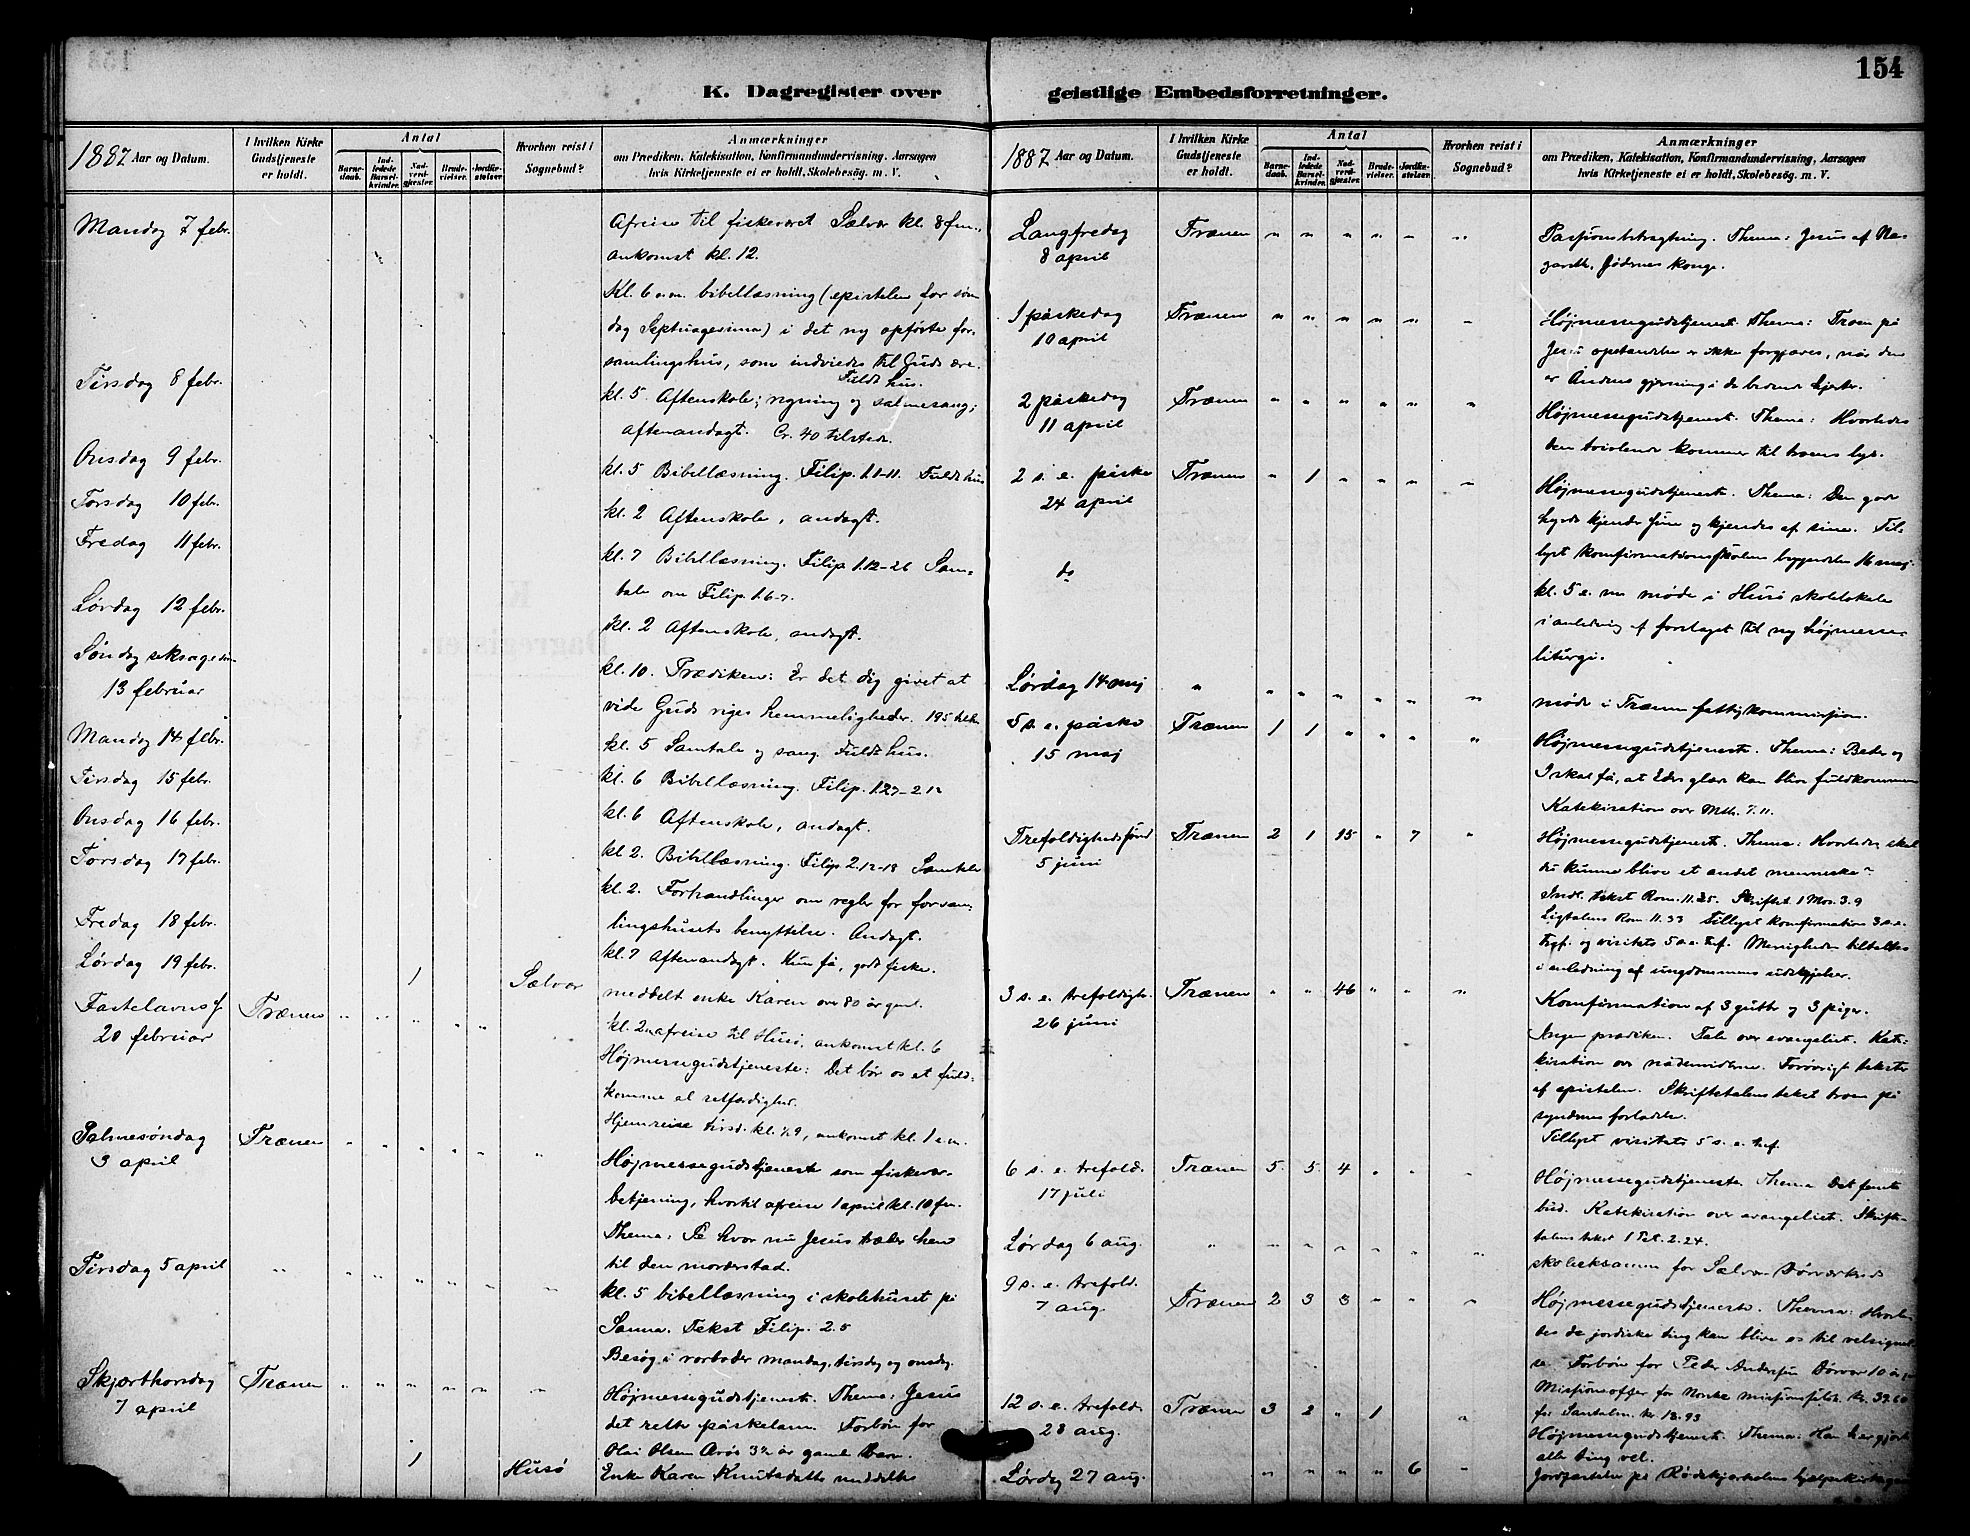 154
K. Dagregister over geistlige Embedsforretninger.
1887 Aar og Datum.
I hvilken Kirke Gudstjeneste er holdt.
Antal
Barnedaab.
Indledede Barselkvinder.
Nadverdgjester.
Brudevielser.
Jordfæstelser.
Hvorhen reist i Sognebud?
Anmærkninger
om Prædiken, Katekisation, Konfirmandundervisning, Aarsagen
hvis Kirketjeneste ei er holdt, Skolebesög. m. V.
Mandag 7 febr.
Afreise til fiskeværet Selvær kl. 8 fm.,
ankomst kl. 12.
Kl. 6 e.m. bibellæsning (epistelen for søn
dag Septuagesima) i det ny opførte for-
samlingshus, som indviedes til Guds ære.
Fuldt hus.
Tirsdag 8 febr.
kl. 5 Aftenskole; regning og salmesang;
aftenandagt. Cr. 40 tilstede.
Onsdag 9 febr.
kl. 5 Bibellæsning. Filip. 1.1-11. Fuldt hus
Torsdag 10 febr.
kl. 2 Aftenskole, andagt.
Fredag 11 febr.
kl. 7 Bibellæsning. Filip 1.12-26 Sam-
tale om Filip. 1.6-7.
Lørdag 12 febr.
kl. 2 Aftenskole, andagt.
Søndag seksagesim
13 februar
kl. 10. Prædiken: Er det dig givet at
vide Guds riges hemmeligheder. 195 tilst.
Mandag 14 febr.
kl. 5 Samtale og sang. Fuldt hus.
Tirsdag 15 febr.
kl. 6 Bibellæsning. Filip. 1.27-2.12
Onsdag 16 febr.
kl. 6 Aftenskole, andagt.
Torsdag 17 febr.
kl 2. Bibellæsning. Filip 2.12-18 Samtale
kl. 2. Forhandlinger om regler for forsam-
lingshusets benyttelse. Andagt.
Fredag 18 febr.
kl. 7 Aftenandagt. Kun få, godt fiske.
Lørdag 19 febr. 1 Selvær
meddelt enke Karen over 80 år gml.
kl. 2 afreise til Husø, ankomst kl. 6
Fastelavns s.
20 februar
Trænen " " " " "
Højmessegudstjeneste: Det bør os at fuld-
komme al retfærdighed.
Hjemreise tirsd. kl. 1/2 9, ankomst kl. 1 e.m.
Palmesøndag
3 april
Trænen " " " " " "
Højmessegudstjeneste som fiskevær-
betjening, hvortil afreise 1 april kl. 10 fm.
Thema: Se hvor nu Jesus træder hen
til den morderstad.
Tirsdag 5 april " " " " " " "
kl. 5 bibellæsning i skolehuset på
Sanna. Tekst Filip. 2.5
Besøg i rorboder mandag, tirsdag og onsdag.
Skjærthorsdag
7 april
Trænen " " " " " "
Højmessegudstjeneste. Thema: Jesus
det rette påskelam. Forbøn for
Olai Olsen 3 1/2 år gamle barn.
1 Husø
Enke Karen Knutsdatter meddeltes
1887 Aar og Datum.
I hvilken Kirke Gudstjeneste er holdt.
Antal
Barnedaab.
Indledede Barselkvinder.
Nadverdgjester.
Brudevielser.
Jordfæstelser.
Hvorhen reist i Sognebud?
Anmærkninger
om Prædiken, Katekisation, Konfirmandundervisning, Aarsagen
hvis Kirketjeneste ei er holdt, Skolebesög. m. V.
Langfredag
8 april
Trænen " " " " " "
Passionsbetragtning. Thema: Jesus af Na-
zareth, Jødernes konge.
1 påskedag
10 april
Trænen " " " " " "
Højmessegudstjeneste. Thema: Troen på
Jesu opstandelse er ikke forgjæves, når den
er Åndens gjerning i de bedende hjerter.
2 påskedag
11 april
Trænen " " " " " "
Højmessegudstjeneste. Thema: Hvorledes
den tvivlende kommer til troens lys.
2 s. e. påske
24 april
Trænen " 1 " " " "
Højmessegudstjeneste. Thema: Den gode
hyrde kjender sine og kjendes af sine. Til-
lyst konfirmationsskolens begyndelse 16 maj
do
kl. 5 e. m. møde i Husø skolelokale
i anledning af forslaget til ny højmesse-
liturgi.
Lørdag 14 maj " " " " " " "
møde i Trænen fattigkommission.
5 s. e. påske
15 maj
Trænen 1 1 " " " "
Højmessegudstjeneste. Thema: Beder og
I skal få, at Eders glæde kan blive fuldkommen
Katekisation over Mth. 7.11.
Trefoldighedssønd
5 juni
Trænen 2 1 15 " 7 "
Højmessegudstjeneste. Thema: Hvorledes skal
du kunne blive et andet menneske?
Indl. tekst Rom. 11.25. Skriftet. 1 Mos. 3.9
Ligtalens Rom. 11.33 Tillyst konfirmation 3 s. e.
Tref. og visitats 5 s. e. Tref. Menigheden tiltaltes
i anledning af ungdommens udskejelser.
3 s. e. trefoldigh.
26 juni
Trænen " " 46 " " "
Konfirmation af 3 gutter og 3 piger.
Ingen prædiken. Tale over evangeliet. Kate-
kisation over nådemidlerne. Forøvrigt tekster
af epistelen. Skriftetalens tekst troen på
syndernes forladelse.
Tillyst visitats 5 s. e. tref.
6 s. e. trefold.
17 juli
Trænen 5 5 4 " " "
Højmessegudstjeneste. Thema Det femte
bud. Katekisation over evangeliet. Skrifte-
talens tekst 1 Pet. 2.24.
Lørdag 6 aug. " " " " " " "
skoleeksamen for Selvær
9 s. e. trefold.
7 aug.
Trænen 2 3 3 " " "
Højmessegudstjeneste. Thema: Hvorle-
des de jordiske ting kan blive os til velsignel-
se. Forbøn for Peder Andersen Dørvær 10 år
Missionsoffer for Norske missionsselsk. kr. 39.60
for Santalm. kr. 18.93
12 s. e. trefold.
28 aug.
Trænen 3 2 " 1 "
Højmessegudstjeneste. Thema: Han har gjort
alle ting vel.
Lørdag 27 aug. " " " " 6 "
Jordfæstelse på